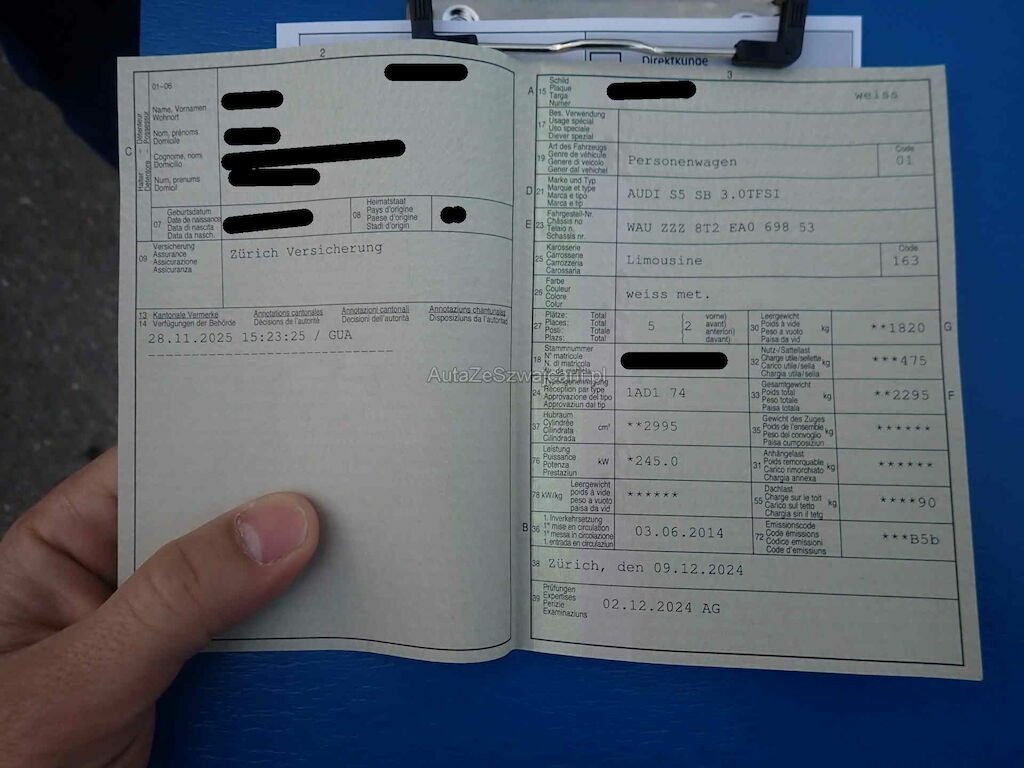 Direktkunde
2
01-06
C
Halter - Détenteur
Detentore - Possessur
Name, Vornamen
Wohnort
Nom, prénoms
Domicile
Cognome, nomi
Domicilio
Num, prenums
Domicil
07
Geburtsdatum
Date de naissance
Data di nascita
Data da nasch.
08
Heimatstaat
Pays d'origine
Paese d'origine
Stadi d'origin
09
Versicherung
Assurance
Assicurazione
Assicuranza
Zürich Versicherung
13 Kantonale Vermerke Annotations cantonales Annotazioni cantonali Annotaziuns chantunalas
14 Verfügungen der Behörde Décisions de l'autorité Decisioni dell'autorità Disposiziuns da l'autoritad
28.11.2025 15:23:25 / GUA
AutaZeSzwajcarii.pl
3
A 15
Schild
Plaque
Targa
Numer
weiss
17
Bes. Verwendung
Usage spécial
Uso speciale
Diever spezial
19
Art des Fahrzeugs
Genre de véhicule
Genere di veicolo
Gener dal vehichel
Personenwagen
Code
01
D 21
Marke und Typ
Marque et type
Marca e tipo
Marca e tip
AUDI S5 SB 3.0TFSI
E 23
Fahrgestell-Nr.
Châssis no
Telaio n.
Schassis nr.
WAU ZZZ 8T2 EA0 698 53
25
Karosserie
Carrosserie
Carrozzeria
Carossaria
Limousine
Code
163
26
Farbe
Couleur
Colore
Colur
weiss met.
27
Plätze: Total
Places: Total
Posti: Totale
Plazs: Total
5
2
vorne)
avant)
anteriori)
davant)
30
Leergewicht
Poids à vide
Peso a vuoto
Paisa da vid
kg
**1820
G
18
Stammnummer
N° matricule
N. di matricola
Nr. da matricla
32
Nutz-/Sattellast
Charge utile/sellette
Carico utile/sella
Chargia utila/sella
kg
***475
24
Typengenehmigung
Réception par type
Approvazione del tipo
Approvaziun dal tip
1AD1 74
33
Gesamtgewicht
Poids total
Peso totale
Paisa totala
kg
**2295
F
37
Hubraum
Cylindrée
Cilindrata
Cilindrada
cm³
**2995
35
Gewicht des Zuges
Poids de l'ensemble
Peso del convoglio
Paisa cumposiziun
kg
******
76
Leistung
Puissance
Potenza
Prestaziun
kW
*245.0
31
Anhängelast
Poids remorquable
Carico rimorchiato
Chargia annexa
kg
******
78 kW/kg
Leergewicht
poids à vide
peso a vuoto
paisa da vid
******
55
Dachlast
Charge sur le toit
Carico sul tetto
Chargia sin il tetg
kg
****90
B 36
1. Inverkehrsetzung
1re mise en circulation
1a messa in circolazione
1. entrada en circulaziun
03.06.2014
72
Emissionscode
Code émissions
Codice emissioni
Code d'emissiuns
***B5b
38 Zürich, den 09.12.2024
39
Prüfungen
Expertises
Perizie
Examinaziuns
02.12.2024 AG